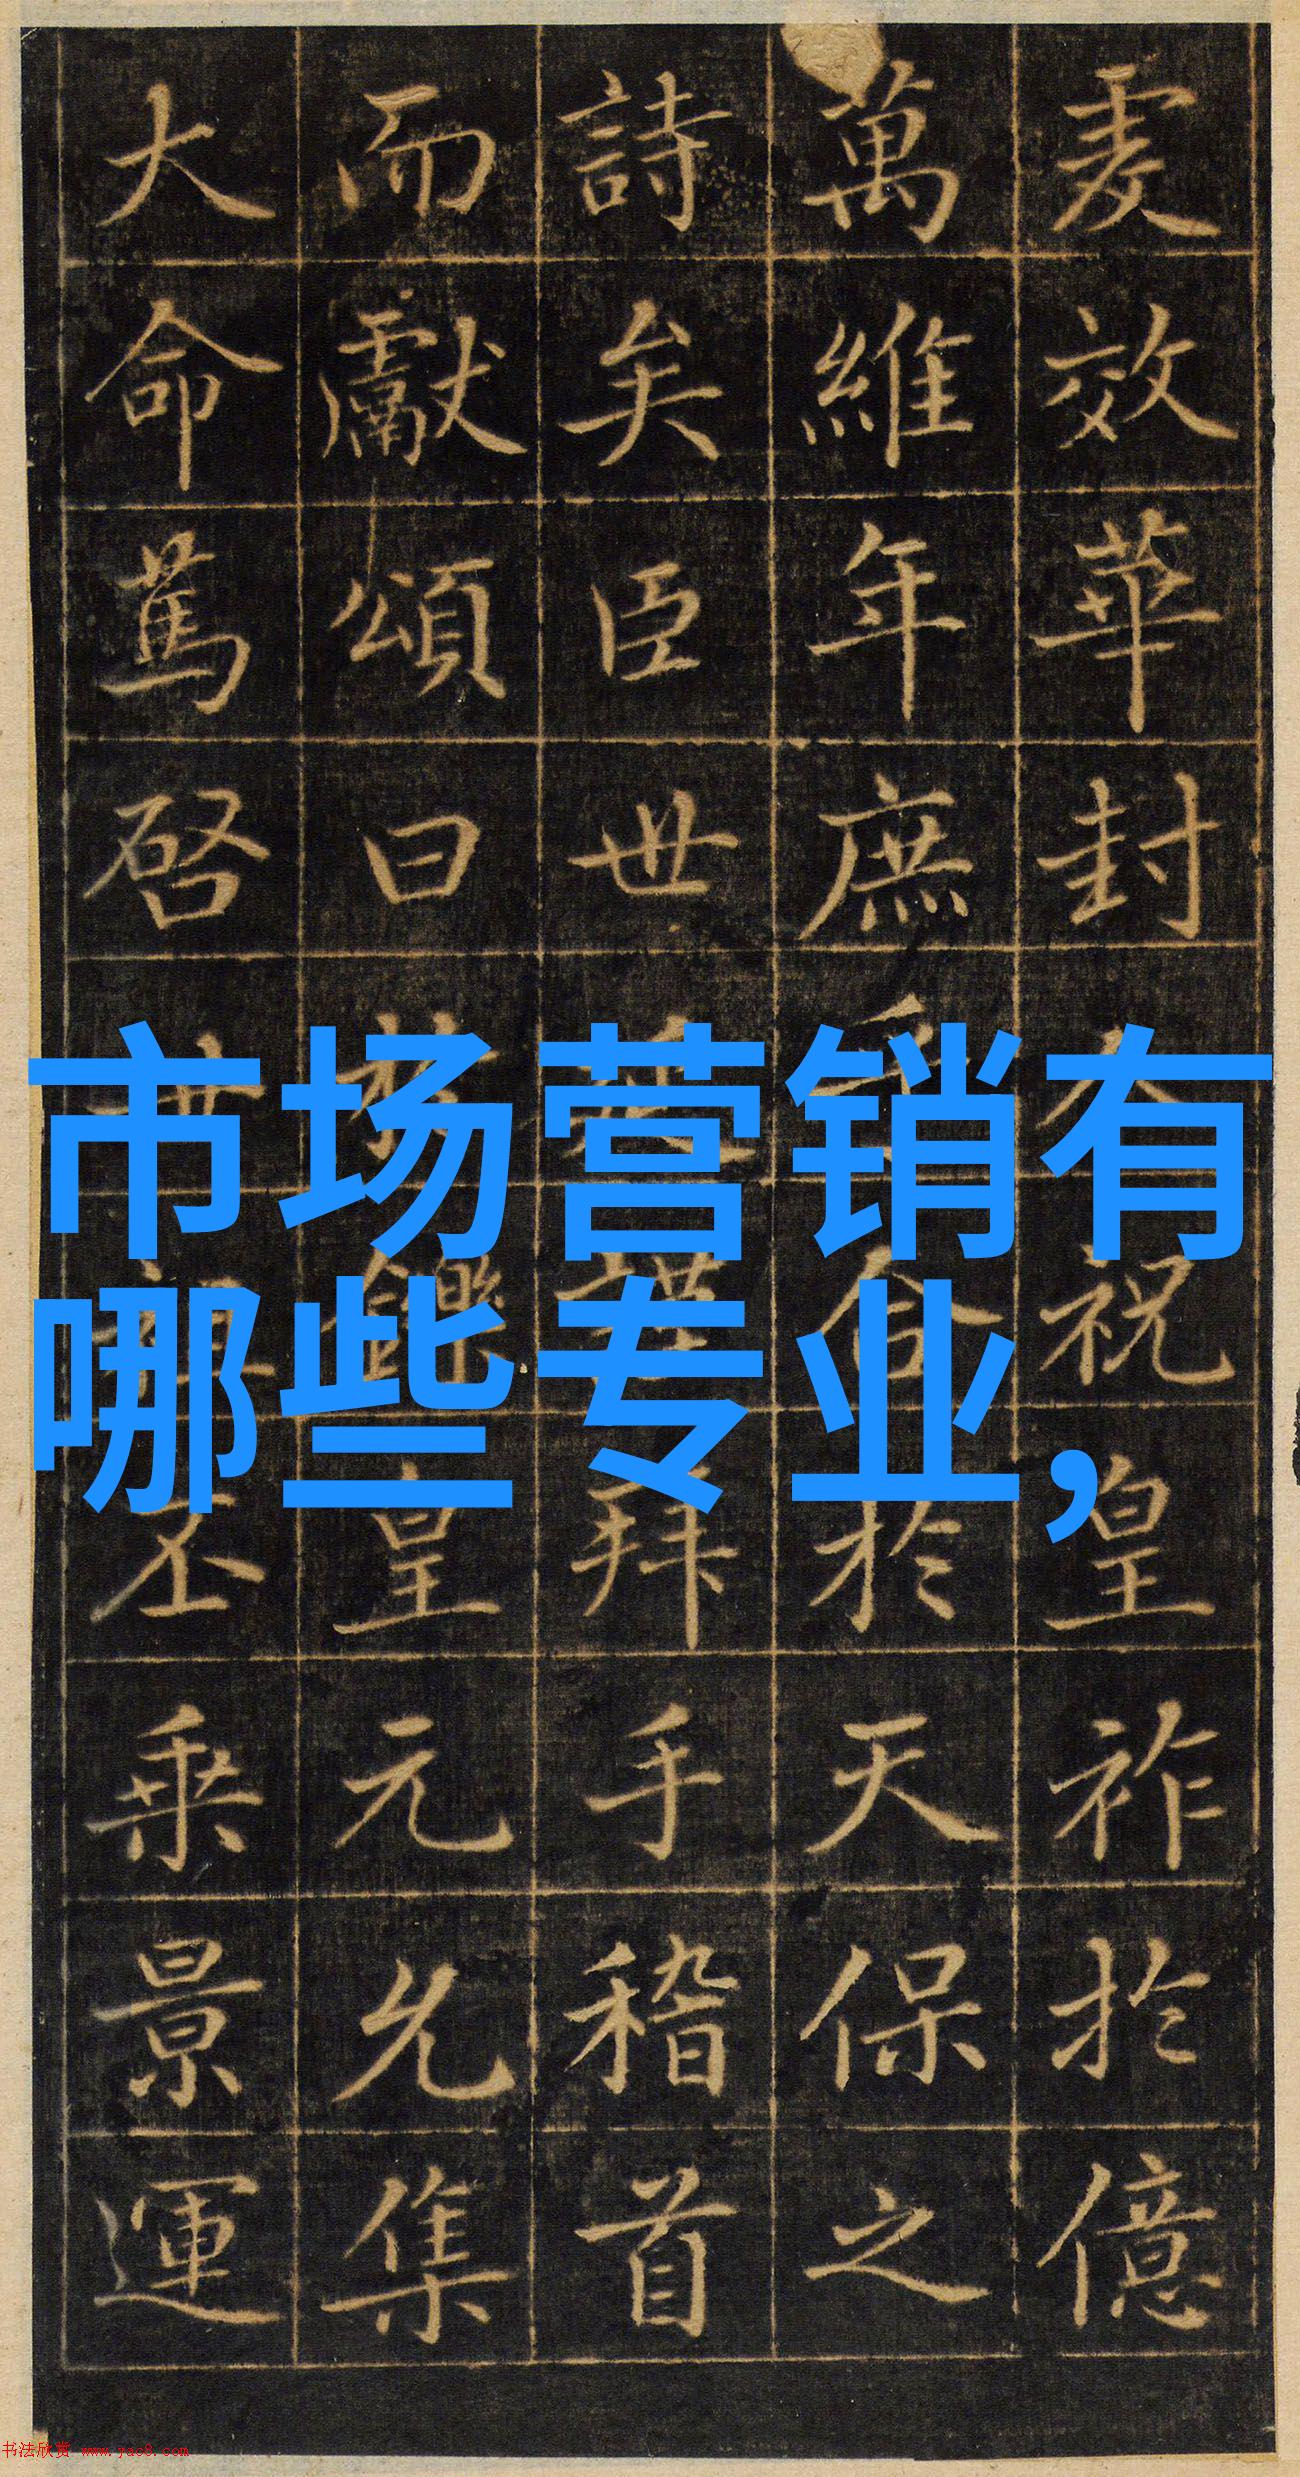 爰效華封人祝皇祚於億
萬維年庶合於天保之
詩矣臣世謹拜手稽首
而獻頌曰於鑠皇元允集
大命篤啓世祖丕乘景運
市场营销有
哪些专业,
书法欣赏 www.yac8.com